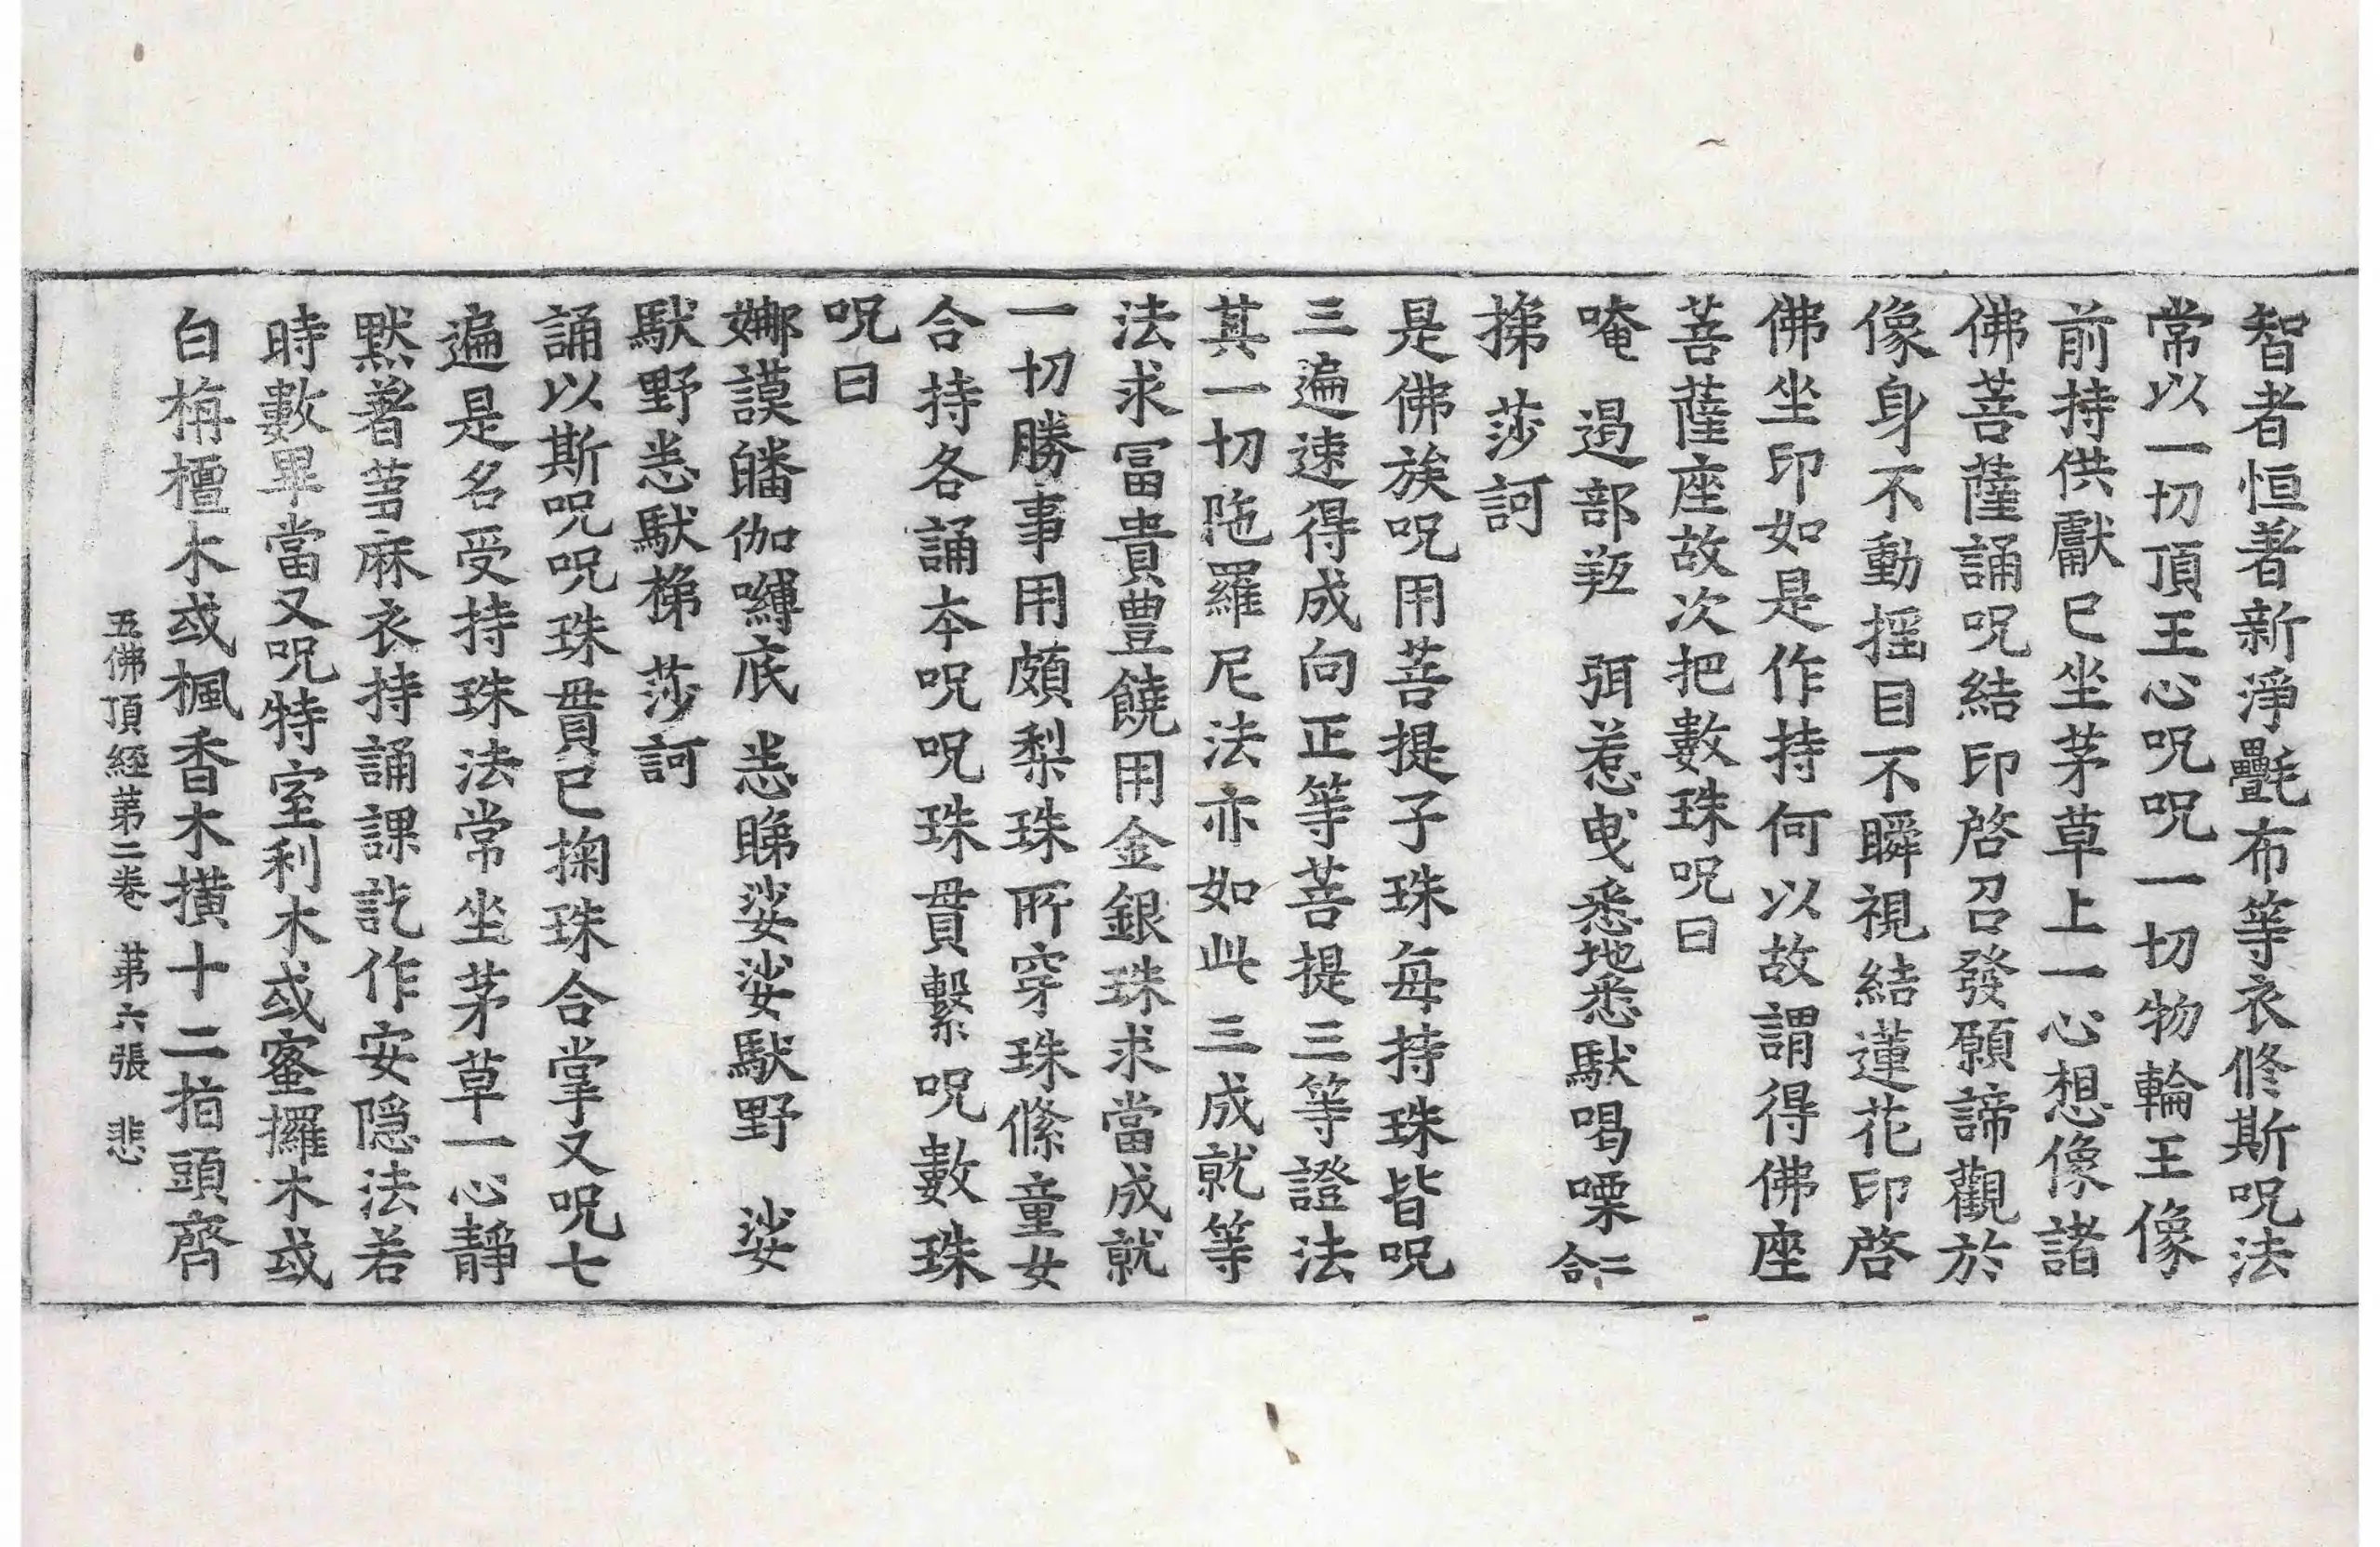 智者恒著新淨氎布等衣修斯呪法
常以一切頂王心呪呪一切物輪王像
前持供獻已坐茅草上一心想像諸
佛菩薩誦呪結印啓召發願諦觀於
像身不動摇目不瞬視結蓮花印啓
佛坐印如是作持何以故謂得佛座
菩薩座故次把數珠呪曰
唵 遏部羟 弭惹曳悉地悉馱喝㗚二合
挮 莎訶
是佛族呪用菩提子珠每持珠皆呪
三遍速得成向正等菩提三等證法
其一切陁羅尼法亦如此三成就等
法求冨貴豊饒用金銀珠求當成就
一切勝事用頗梨珠所穿珠絛童女
合持各誦本呪呪珠貫繫呪數珠
呪曰
娜謨皤伽嚩底 悉睇娑娑馱野 娑
馱野悉馱梯 莎訶
誦以斯呪呪珠貫已掬珠合掌又呪七
遍是名受持珠法常坐茅草一心靜
默著蒭麻衣持誦課訖作安隱法若
時數畢當又呪特室利木或蜜攞木或
白栴檀木或楓香木撗十二指頭齊
五佛頂經苐二卷 苐六張 悲